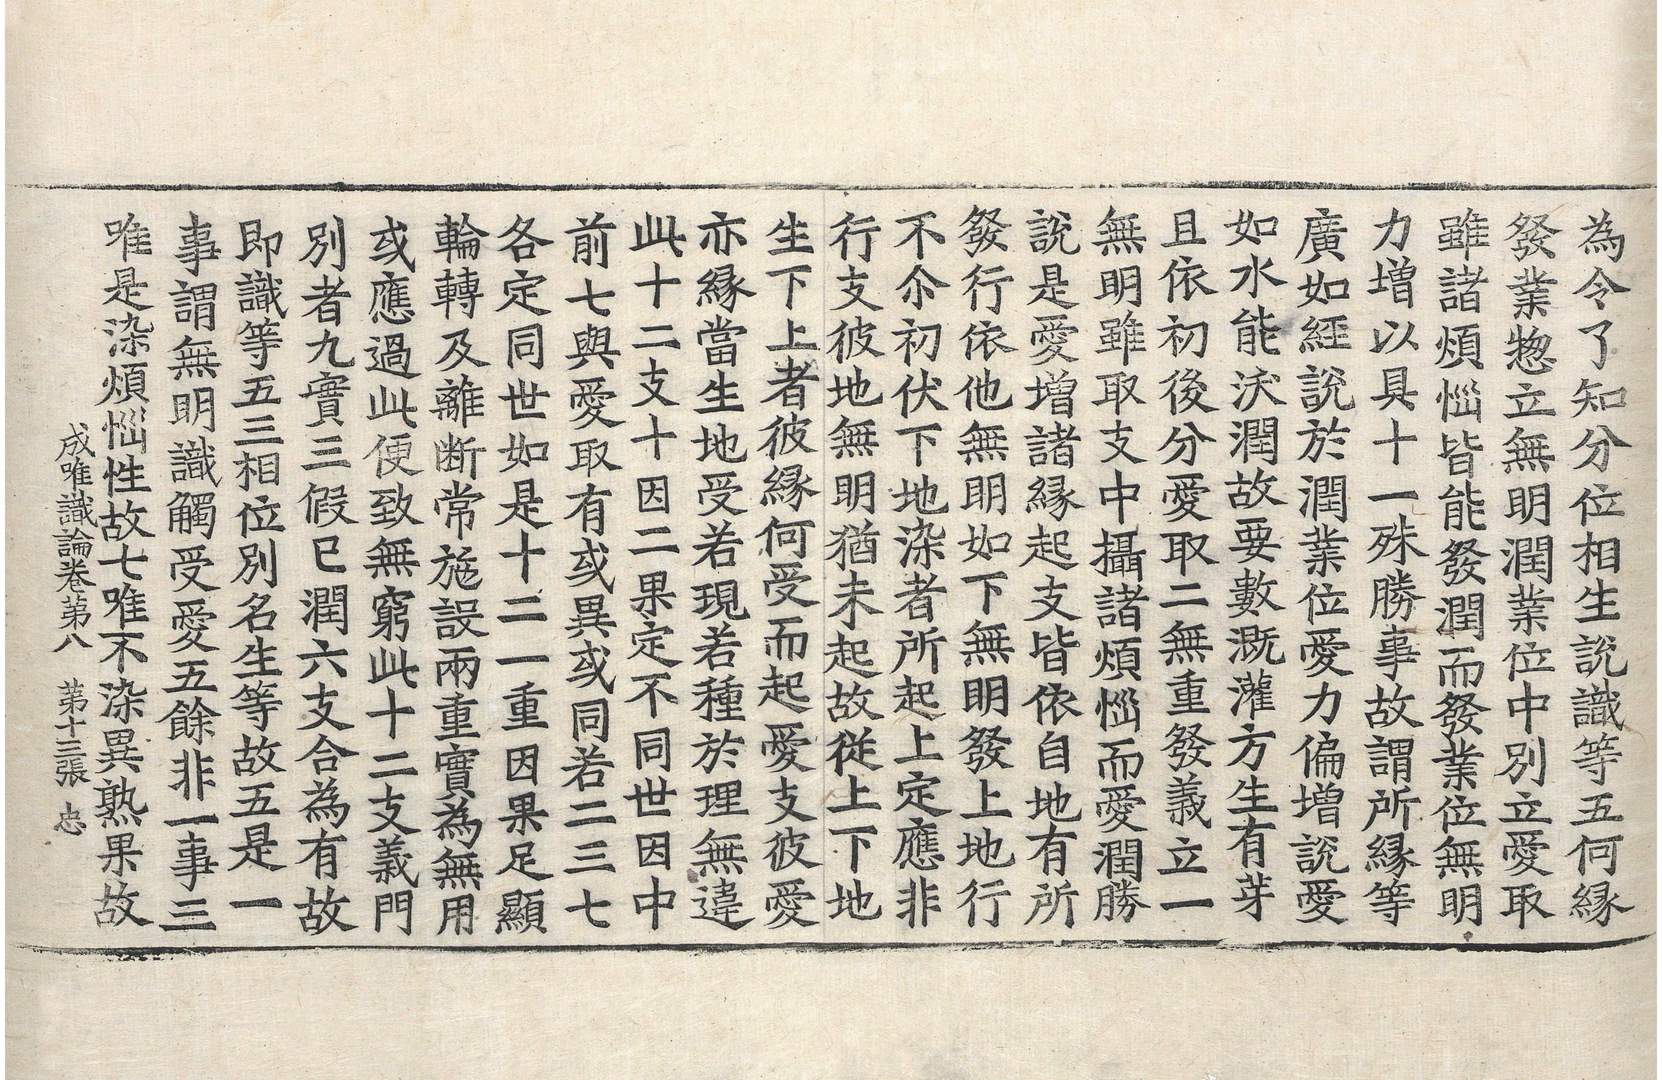 為令了知分位相生說識等五何縁
發業惣立無明潤業位中別立愛取
雖諸煩惱皆能發潤而發業位無明
力增以具十一殊勝事故謂所縁等
廣如經說於潤業位愛力偏增說愛
如水能沃潤故要數溉灌方生有芽
且依初後分愛取二無重發義立一
無明雖取支中攝諸煩惱而愛潤勝
說是愛增諸縁起支皆依自地有所
發行依他無明如下無明發上地行
不尒初伏下地染者所起上定應非
行支彼地無明猶未起故從上下地
生下上者彼縁何受而起愛支彼愛
亦縁當生地受若現若種於理無違
此十二支十因二果定不同世因中
前七與愛取有或異或同若二三七
各定同世如是十二一重因果足顯
輪轉及離断常施設兩重實為無用
或應過此便致無窮此十二支義門
別者九實三假已潤六支合為有故
即識等五三相位別名生等故五是一
事謂無明識觸受愛五餘非一事三
唯是染煩惱性故七唯不染異熟果故
成唯識論卷第八 第十三張 忠